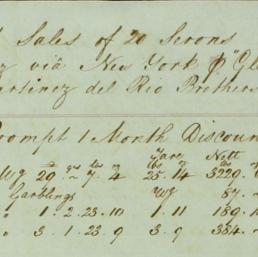 Sales of 20 Serons
via New York p "Gl
artinez del Rio Brothers
rompt 1 Month Discoun
qrs lbs oz Tare Nett
Wg 29 ~ 7. 4 25. 14 3229. 6
Garblings Wg 87. ~
" 1. 2. 23. 10 1. 11 189. 1
" 3. 1. 23. 9 3. 9 384. ~